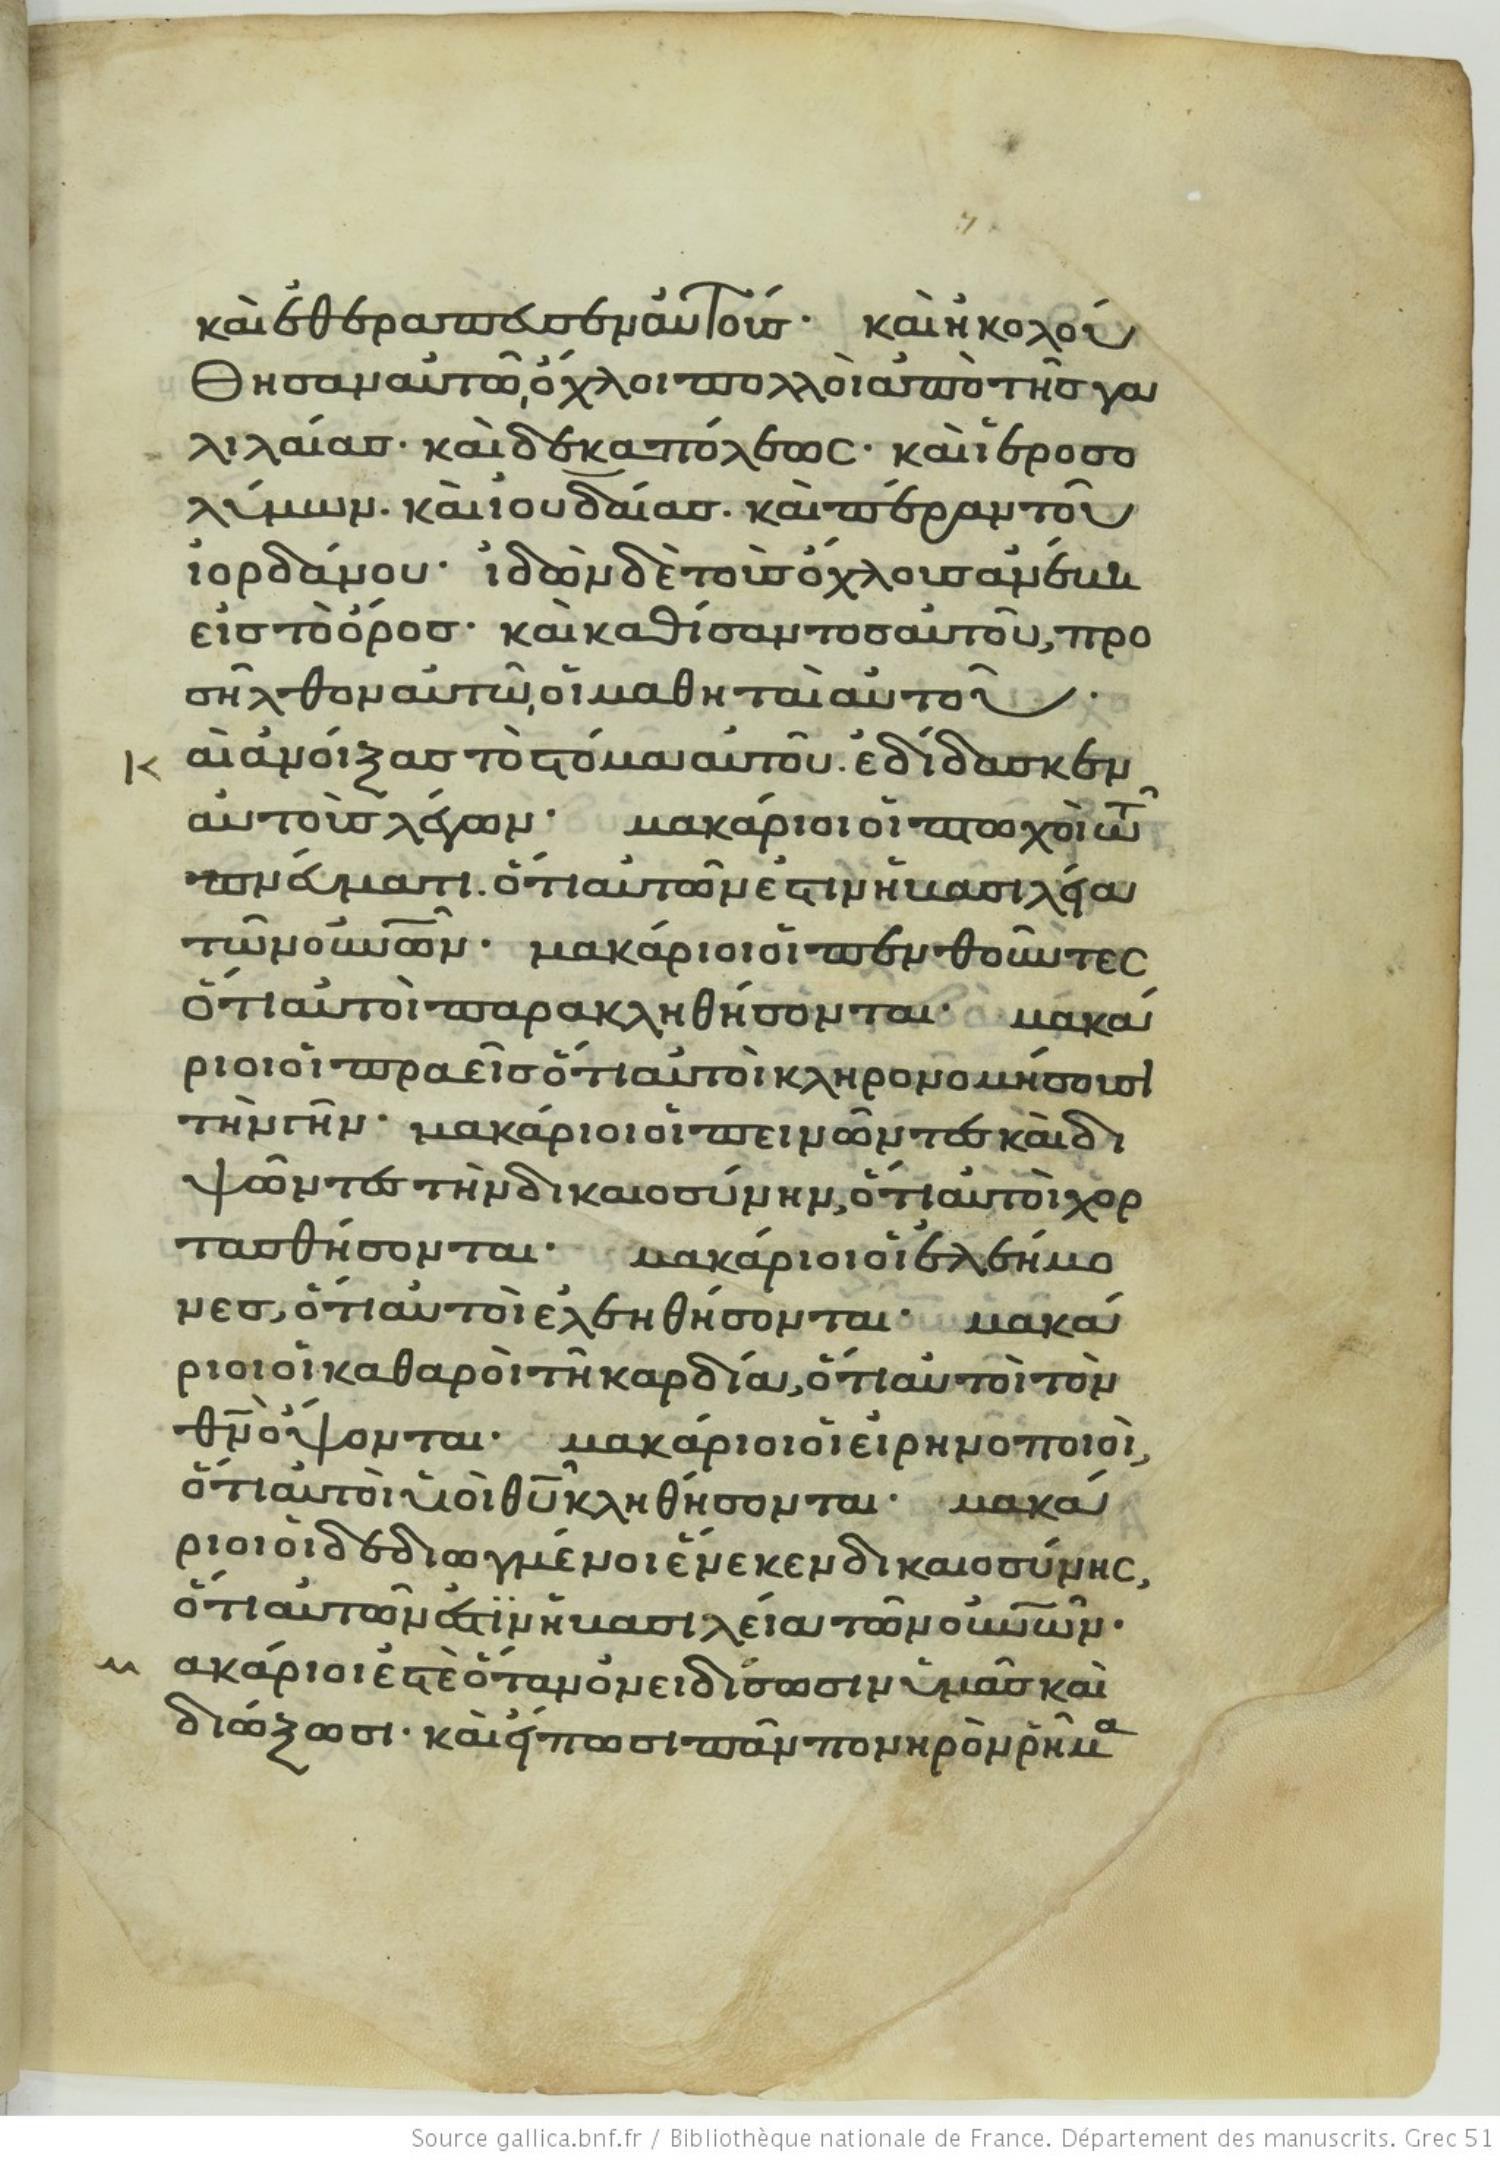 καὶ ἐθεράπευσεν αὐτούς· καὶ ἠκολού
θησαν αὐτῶ, ὄχλοι πολλοὶ ἀπὸ τῆς γα
λιλαίας· καὶ δεκαπόλεως· καὶ ἱεροσο
λύμων. καὶ ἰουδαίας. καὶ πέραν τοῦ
ἰορδάνου· ἰδὼν δὲ τοὺς ὄχλους ἀνέβη
εἰς τὸ ὄρος· καὶ καθίσαντος αὐτοῦ, προ
σῆλθον αὐτῶ, οἱ μαθηταὶ αὐτοῦ·
Κ αὶ ἀνοίξας τὸ στόμα αὐτοῦ. ἐδίδασκεν
αὐτοὺς λέγων· μακάριοι οἱ πτωχοὶ τῶ
πνεύματι. ὅτι αὐτῶν ἐστιν ἡ βασιλεία
τῶν οὐνῶν· μακάριοι οἱ πενθοῦντες
ὅτι αὐτοὶ παρακληθήσονται· μακά
ριοι οἱ πραεῖς ὅτι αὐτοὶ κληρονομήσουσι
τὴν γῆν· μακάριοι οἱ πεινῶντες καὶ δι
ψῶντες τὴν δικαιοσύνην, ὅτι αὐτοὶ χορ
τασθήσονται· μακάριοι οἱ ἐλεήμο
νες, ὅτι αὐτοὶ ἐλεηθήσονται· μακά
ριοι οἱ καθαροὶ τῆ καρδία, ὅτι αὐτοὶ τὸν
θν ὄψονται· μακάριοι οἱ εἰρηνοποιοὶ,
ὅτι αὐτοὶ υἱοὶ θυ κληθήσονται· μακά
ριοι οἱ δεδιωγμένοι ἕνεκεν δικαιοσύνης,
ὅτι αὐτῶν ἐστὶν ἡ βασιλεία τῶν οὐνῶν·
μ ακάριοι ἐστὲ ὅταν ὀνειδίσωσιν ὑμᾶς καὶ
διώξωσι· καὶ εἴπωσι πᾶν πονηρὸν ῥῆμα
Source gallica.bnf.fr / Bibliothèque nationale de France. Département des manuscrits. Grec 51